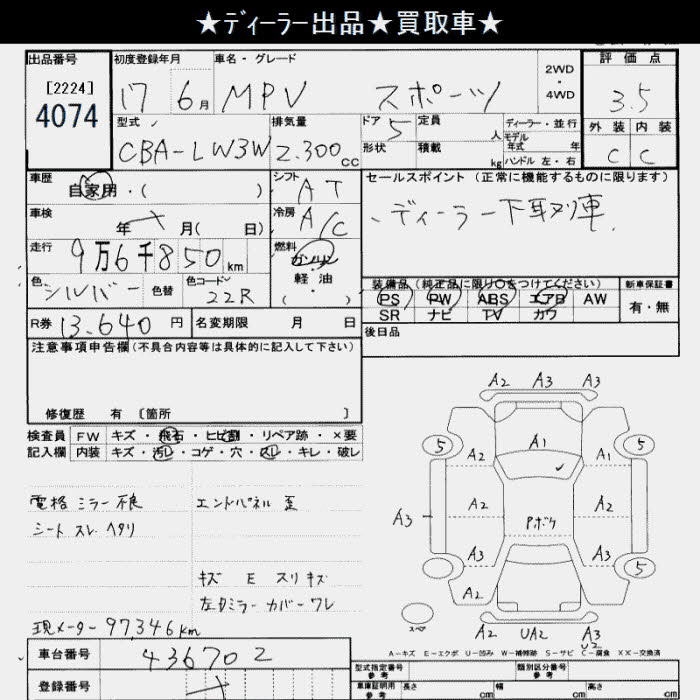 ★ディーラー出品★買取車★
出品番号 初度登録年月 車名・グレード 2WD・4WD 評価点
[2224] 4074 17 6月 MPV スポーツ 3.5
型式 排気量 ドア 定員 人 ディーラー・並行 外装 内装
CBA-LW3W 2.300cc 5 モデル年式 年 C C
形状 積載 kg ハンドル 左・右
車歴 自家用・( ) シフト AT セールスポイント (正常に機能するものに限ります)
車検 年 月( 日) 冷房 A/C ディーラー下取り車
走行 9万6千850km 燃料 ガソリン・軽油・( )
色 シルバー 色替 色コード 22R 装備品 (純正品に限り○をつけてください) 新車保証書
PS PW ABS エアB AW 有・無
SR ナビ TV カワ
R券 13.640円 名変期限 月 日 後日品
注意事項申告欄(不具合内容等は具体的に記入して下さい)
修復歴 有 [箇所 ]
検査員 FW キズ・飛石・ヒビ割・リペア跡・×要
記入欄 内装 キズ・汚レ・コゲ・穴・スレ・キレ・破レ
電格ミラー不良 エンドパネル 歪
シート スレ ヘタリ
キズ E スリキズ
現メーター 97346km
車台番号 436702
登録番号
A2 A3 A3
5 A1 5
A2 A2
A3 A2 Pボケ A2
A3 A3
A2 5
スペア
A2 UA2 A3
U2
A-キズ E-エクボ U-凹み W-補修跡 S-サビ C-腐食 XX-交換済
型式指定番号 参考 類別区分番号 参考
車庫証明用 参考 長さ cm 幅 cm 高さ cm